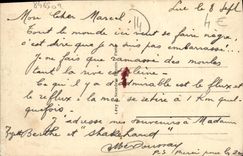 Luc le 8 Sept
Mon Cher Marcel !
Tout le monde ici veut se faire nègre,
c'est dire que je ne suis pas embarrassé...
Je ne fais que ramasser des moules
tant la mer est
Ce qu'il y a d'admirable est le flux et
le reflux. la mer se retire à 1 Km quel-
quefois.
J'adresse mes souvenirs à Madame
Berthe et "shakehand"
P.S.
4€